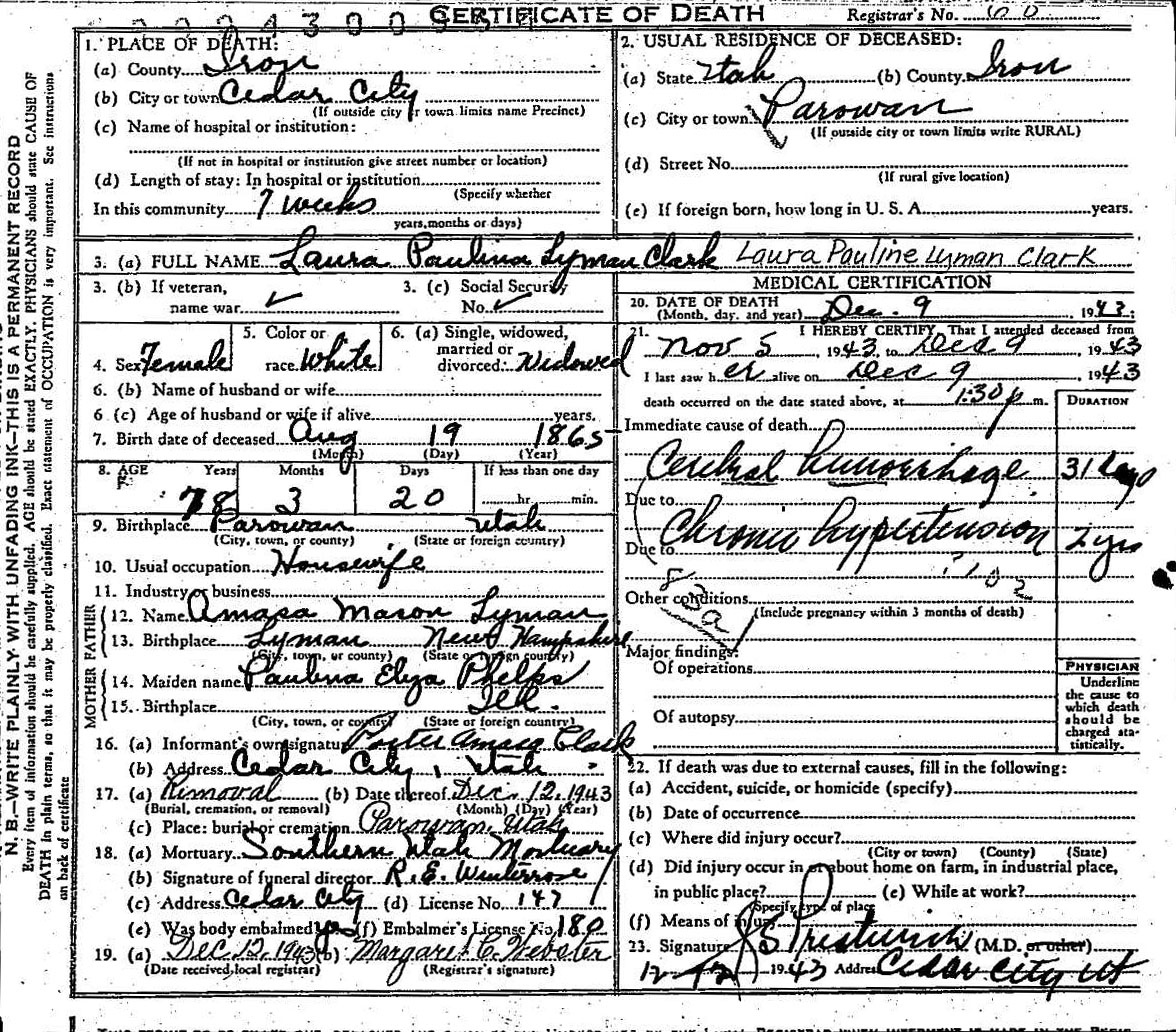 CERTIFICATE OF DEATH
Registrar's No. 60
N. B.—WRITE PLAINLY WITH UNFADING INK—THIS IS A PERMANENT RECORD
Every item of information should be carefully supplied. AGE should be stated EXACTLY. PHYSICIANS should state CAUSE OF
DEATH in plain terms, so that it may be properly classified. Exact statement of OCCUPATION is very important. See instructions
on back of certificate
1. PLACE OF DEATH:
(a) County Iron
(b) City or town Cedar City
(If outside city or town limits name Precinct)
(c) Name of hospital or institution:
(If not in hospital or institution give street number or location)
(d) Length of stay: In hospital or institution
(Specify whether
In this community 7 weeks
years, months or days)
2. USUAL RESIDENCE OF DECEASED:
(a) State Utah (b) County Iron
(c) City or town Parowan
(If outside city or town limits write RURAL)
(d) Street No.
(If rural give location)
(e) If foreign born, how long in U. S. A. years.
3. (a) FULL NAME Laura Paulina Lyman Clark Laura Pauline Lyman Clark
3. (b) If veteran,
name war ✓
3. (c) Social Security
No. ✓
4. Sex Female
5. Color or
race White
6. (a) Single, widowed,
married or
divorced: Widowed
6. (b) Name of husband or wife
6 (c) Age of husband or wife if alive years.
7. Birth date of deceased Aug 19 1865
(Month) (Day) (Year)
8. AGE Years Months Days If less than one day
78 3 20 hr. min.
9. Birthplace Parowan Utah
(City, town, or county) (State or foreign country)
10. Usual occupation Housewife
11. Industry or business
FATHER
12. Name Amasa Mason Lyman
13. Birthplace Lyman New Hampshire
(City, town, or county) (State or foreign country)
MOTHER
14. Maiden name Paulina Eliza Phelps
15. Birthplace Ill.
(City, town, or county) (State or foreign country)
16. (a) Informant's own signature Porter Amasa Clark
(b) Address Cedar City, Utah
17. (a) Removal (b) Date thereof Dec. 12, 1943
(Burial, cremation, or removal) (Month) (Day) (Year)
(c) Place: burial or cremation Parowan, Utah
18. (a) Mortuary Southern Utah Mortuary
(b) Signature of funeral director R. E. Winterrose
(c) Address Cedar City (d) License No. 147
(e) Was body embalmed yes (f) Embalmer's License No. 180
19. (a) Dec 12, 1943 (b) Margaret C. Webster
(Date received, local registrar) (Registrar's signature)
MEDICAL CERTIFICATION
20. DATE OF DEATH
(Month, day, and year) Dec. 9, 1943
21. I HEREBY CERTIFY, That I attended deceased from
Nov 5, 1943, to Dec 9, 1943
I last saw her alive on Dec 9 1943
death occurred on the date stated above, at 1:30 p m.
DURATION
Immediate cause of death
Cerebral hemorrhage 31 days
Due to
Chronic hypertension 2 yrs
Due to
83a
Other conditions
(Include pregnancy within 3 months of death)
Major findings:
Of operations
Of autopsy
PHYSICIAN
Underline
the cause to
which death
should be
charged sta-
tistically.
22. If death was due to external causes, fill in the following:
(a) Accident, suicide, or homicide (specify)
(b) Date of occurrence
(c) Where did injury occur?
(City or town) (County) (State)
(d) Did injury occur in or about home on farm, in industrial place,
in public place? (e) While at work?
(Specify type of place
(f) Means of injury
23. Signature (M.D. or other)
12-12 1943 Address Cedar City Ut